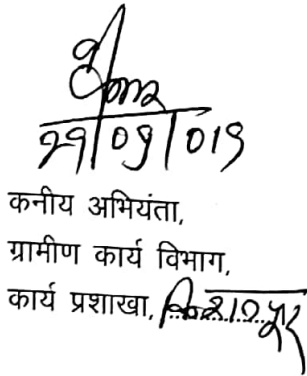 29/09/019
कनीय अभियंता,
ग्रामीण कार्य विभाग,
कार्य प्रशाखा,